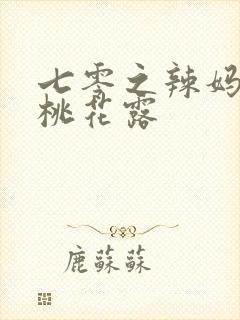 七零之辣妈
桃花露
鹿蘇蘇